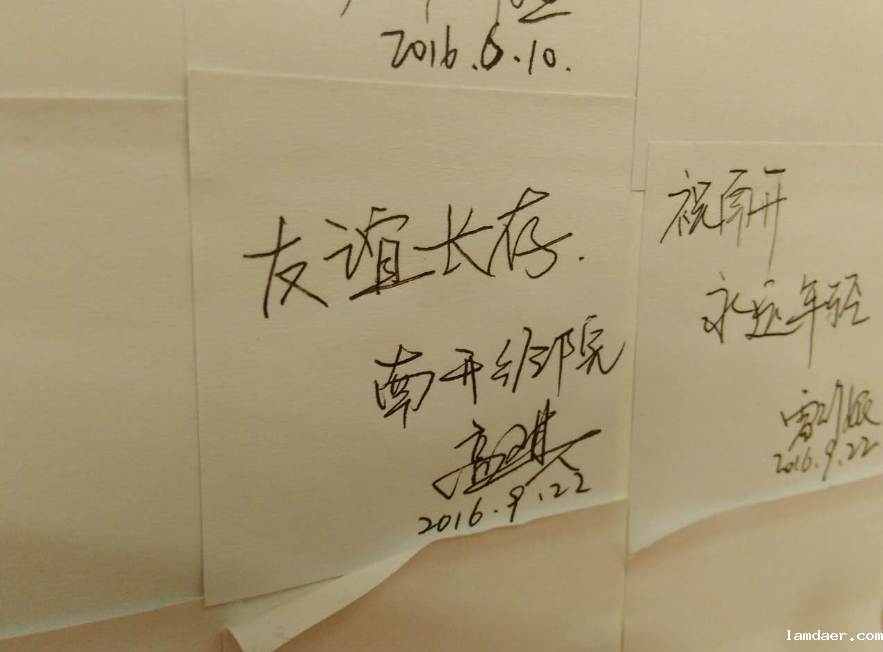 2016.6.10.
友谊长存.
南开经济院
2016.9.22
祝南开
永远年轻
2016.9.22
lamdaer.com